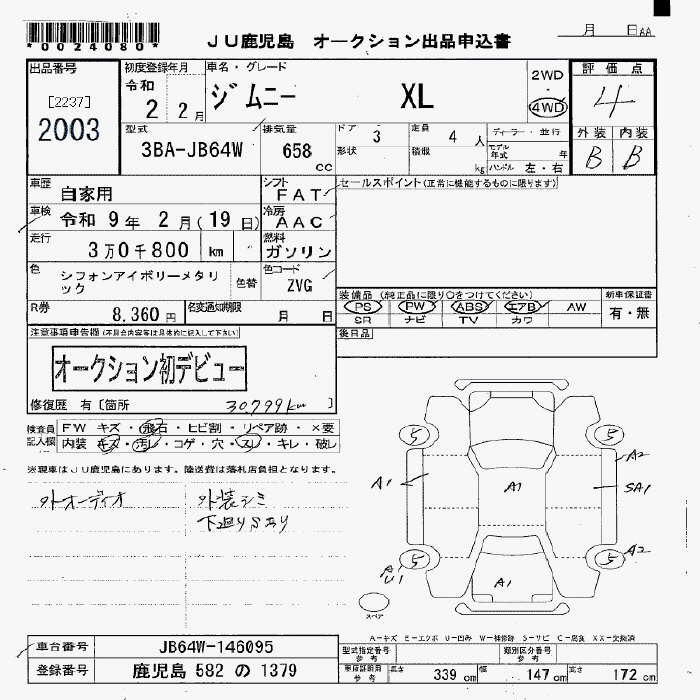 *0024080*
JU鹿児島 オークション出品申込書
月 日 AA
出品番号
[2237]
2003
初度登録年月
令和
2 2月
車名・グレード
ジムニー XL
2WD
4WD
評価点
4
外装 内装
B B
型式
3BA-JB64W
排気量
658
cc
ドア 3
形状
定員 4 人
積載 kg
ディーラー・並行
モデル年式 年
ハンドル 左・右
車歴 自家用
シフト FAT
車検 令和 9年 2月(19日)
冷房 AAC
走行 3万0千800 km
燃料 ガソリン
色 シフォンアイボリーメタリック
色替
色コード ZVG
R券 8,360 円
名変通知期限 月 日
セールスポイント(正常に機能するものに限ります)
装備品 (純正品に限り○をつけてください)
PS PW ABS エアB AW
SR ナビ TV カワ
新車保証書
有・無
後日品
注意事項申告欄 (不具合内容等は具体的に記入して下さい)
オークション初デビュー
修復歴 有〔箇所 30,799km 〕
検査員記入欄
FW キズ・飛石・ヒビ割・リペア跡・×要
内装 キズ・汚レ・コゲ・穴・スレ・キレ・破レ
※現車はJU鹿児島にあります。陸送費は落札店負担となります。
外オーディオ
外装シミ
下廻りSあり
5 5
A2
A1 A1 SA1
5 5
A2
A
U1
A1
スペア
A-キズ E-エクボ U-凹み W-補修跡 S-サビ C-腐食 XX-交換済
車台番号 JB64W-146095
登録番号 鹿児島 582 の 1379
型式指定番号
参考
類別区分番号
参考
車庫証明用
参考
長さ 339 cm 幅 147 cm 高さ 172 cm